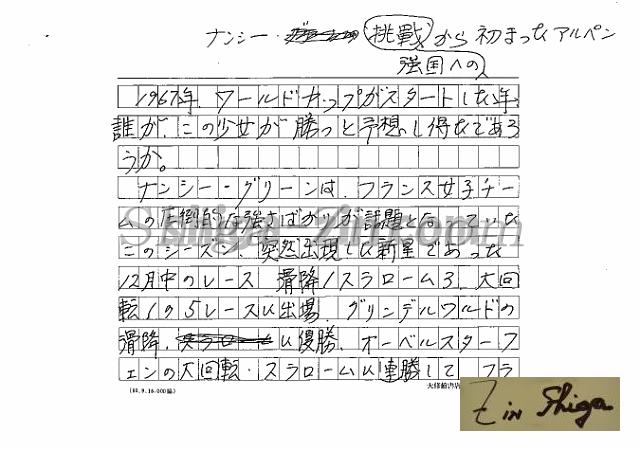 ナンシー・挑戦から初まったアルペン
強国への
1967年、ワールドカップがスタートした年、
誰が、この少女が勝つと予想し得たであろ
うか。
ナンシー・グリーンは、フランス女子チー
ムの圧倒的な強さばかりが話題となっていた
このシーズン、突然出現した新星であった
12月中のレース 滑降1スラローム3、大回
転1の5レースに出場、グリンデルワルドの
滑降、に優勝、オーベルスターフ
ェンの大回転・スラロームに連勝して、フラ
(44.9.16.000脇)
大修館書店
Shiga-Zin.com
Z in Shiga